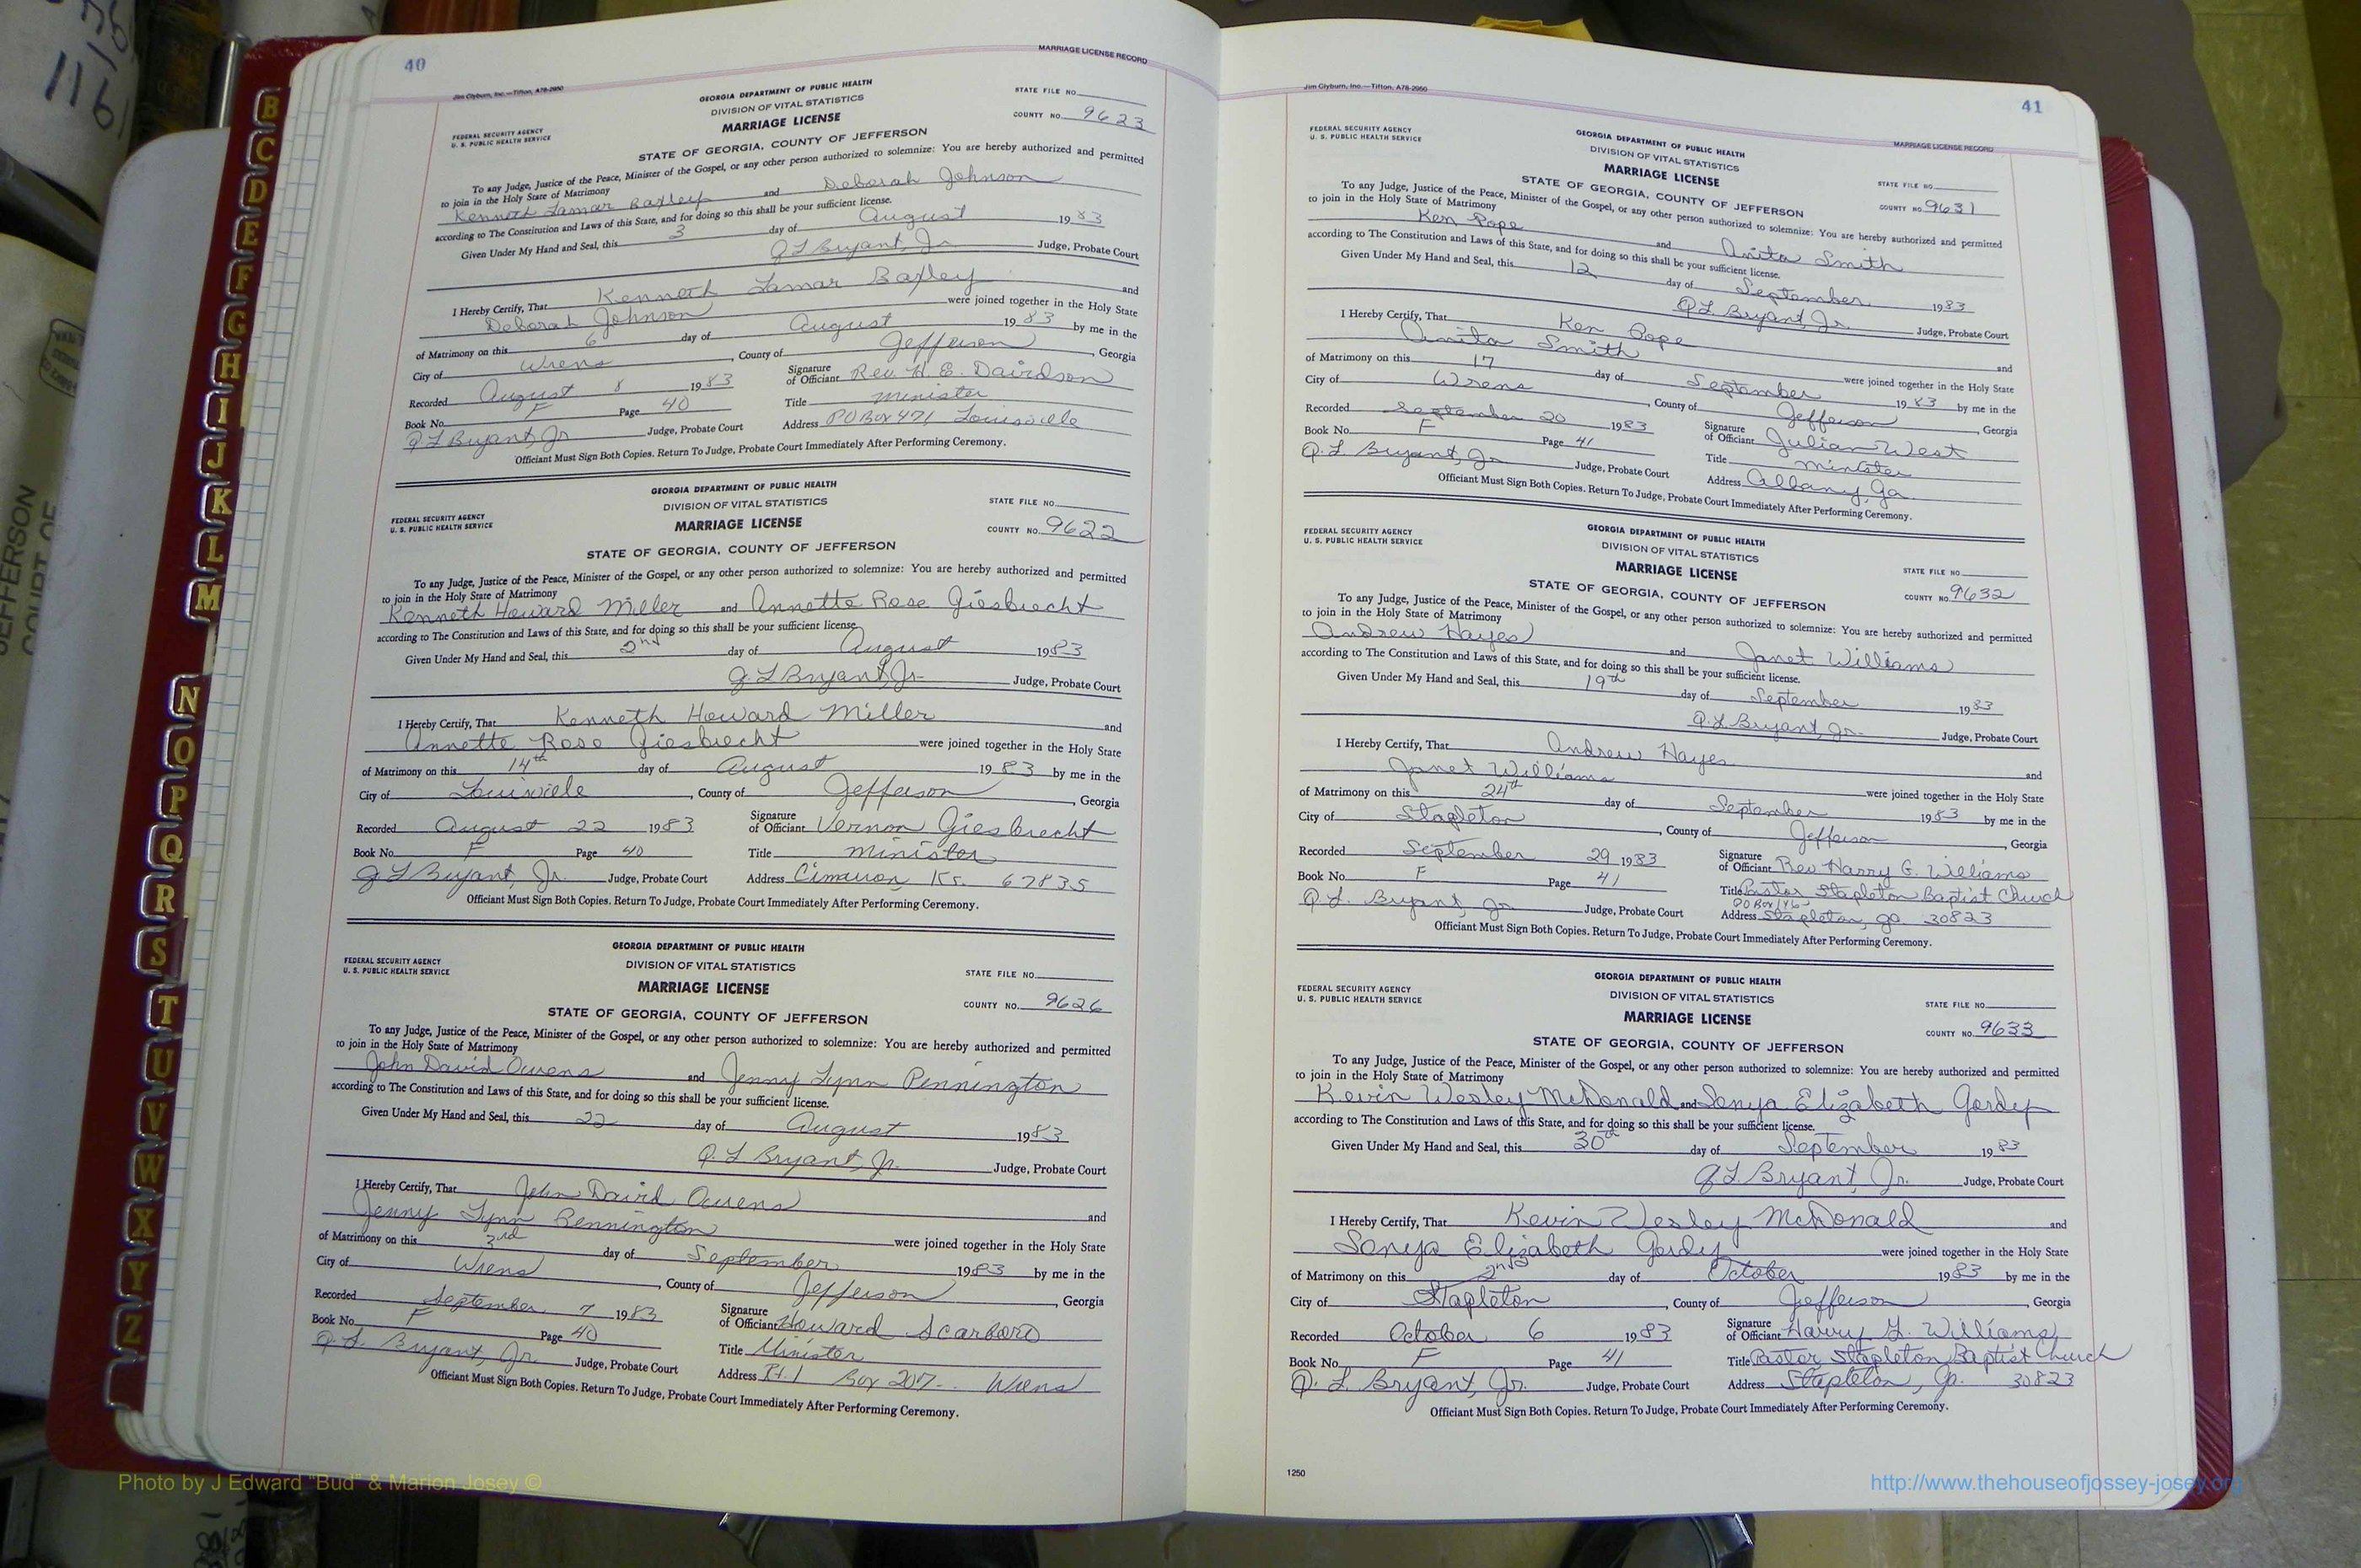 40
MARRIAGE LICENSE RECORD
Jim Clyburn, Inc.—Tifton, A78-2950
GEORGIA DEPARTMENT OF PUBLIC HEALTH
DIVISION OF VITAL STATISTICS
MARRIAGE LICENSE
STATE OF GEORGIA, COUNTY OF JEFFERSON
FEDERAL SECURITY AGENCY
U. S. PUBLIC HEALTH SERVICE
STATE FILE NO.
COUNTY NO. 9623
To any Judge, Justice of the Peace, Minister of the Gospel, or any other person authorized to solemnize: You are hereby authorized and permitted
to join in the Holy State of Matrimony
Kenneth Lamar Baxley and Deborah Johnson
according to The Constitution and Laws of this State, and for doing so this shall be your sufficient license.
Given Under My Hand and Seal, this 3 day of August 1983
Q L Bryant, Jr. Judge, Probate Court
I Hereby Certify, That Kenneth Lamar Baxley and
Deborah Johnson were joined together in the Holy State
of Matrimony on this 6 day of August 1983 by me in the
City of Wrens, County of Jefferson, Georgia
Recorded August 8 1983 Signature of Officiant Rev. H. E. Davidson
Book No. F Page 40 Title Minister
Q L Bryant, Jr Judge, Probate Court Address PO Box 471 Louisville
Officiant Must Sign Both Copies. Return To Judge, Probate Court Immediately After Performing Ceremony.
GEORGIA DEPARTMENT OF PUBLIC HEALTH
DIVISION OF VITAL STATISTICS
MARRIAGE LICENSE
STATE OF GEORGIA, COUNTY OF JEFFERSON
FEDERAL SECURITY AGENCY
U. S. PUBLIC HEALTH SERVICE
STATE FILE NO.
COUNTY NO. 9622
To any Judge, Justice of the Peace, Minister of the Gospel, or any other person authorized to solemnize: You are hereby authorized and permitted
to join in the Holy State of Matrimony
Kenneth Howard Miller and Annette Rose Giesbrecht
according to The Constitution and Laws of this State, and for doing so this shall be your sufficient license.
Given Under My Hand and Seal, this 2nd day of August 1983
Q L Bryant, Jr. Judge, Probate Court
I Hereby Certify, That Kenneth Howard Miller and
Annette Rose Giesbrecht were joined together in the Holy State
of Matrimony on this 14th day of August 1983 by me in the
City of Louisville, County of Jefferson, Georgia
Recorded August 22 1983 Signature of Officiant Vernon Giesbrecht
Book No. F Page 40 Title Minister
Q L Bryant, Jr. Judge, Probate Court Address Cimarron Ks. 67835
Officiant Must Sign Both Copies. Return To Judge, Probate Court Immediately After Performing Ceremony.
GEORGIA DEPARTMENT OF PUBLIC HEALTH
DIVISION OF VITAL STATISTICS
MARRIAGE LICENSE
STATE OF GEORGIA, COUNTY OF JEFFERSON
FEDERAL SECURITY AGENCY
U. S. PUBLIC HEALTH SERVICE
STATE FILE NO.
COUNTY NO. 9626
To any Judge, Justice of the Peace, Minister of the Gospel, or any other person authorized to solemnize: You are hereby authorized and permitted
to join in the Holy State of Matrimony
John David Owens and Jenny Lynn Pennington
according to The Constitution and Laws of this State, and for doing so this shall be your sufficient license.
Given Under My Hand and Seal, this 22 day of August 1983
Q. L Bryant, Jr. Judge, Probate Court
I Hereby Certify, That John David Owens and
Jenny Lynn Pennington were joined together in the Holy State
of Matrimony on this 3rd day of September 1983 by me in the
City of Wrens, County of Jefferson, Georgia
Recorded September 7 1983 Signature of Officiant Howard Scarboro
Book No. F Page 40 Title Minister
Q. L. Bryant, Jr. Judge, Probate Court Address Rt. 1 Box 207 Wrens
Officiant Must Sign Both Copies. Return To Judge, Probate Court Immediately After Performing Ceremony.
41
Jim Clyburn, Inc.—Tifton, A78-2950
MARRIAGE LICENSE RECORD
FEDERAL SECURITY AGENCY
U. S. PUBLIC HEALTH SERVICE
GEORGIA DEPARTMENT OF PUBLIC HEALTH
DIVISION OF VITAL STATISTICS
MARRIAGE LICENSE
STATE OF GEORGIA, COUNTY OF JEFFERSON
STATE FILE NO.
COUNTY NO. 9631
To any Judge, Justice of the Peace, Minister of the Gospel, or any other person authorized to solemnize: You are hereby authorized and permitted
to join in the Holy State of Matrimony
Ken Pope and Anita Smith
according to The Constitution and Laws of this State, and for doing so this shall be your sufficient license.
Given Under My Hand and Seal, this 12 day of September 1983
Q L Bryant, Jr. Judge, Probate Court
I Hereby Certify, That Ken Pope and
Anita Smith were joined together in the Holy State
of Matrimony on this 17 day of September 1983 by me in the
City of Wrens, County of Jefferson, Georgia
Recorded September 20 1983 Signature of Officiant Julian West
Book No. F Page 41 Title Minister
Q. L. Bryant, Jr. Judge, Probate Court Address Albany, Ga.
Officiant Must Sign Both Copies. Return To Judge, Probate Court Immediately After Performing Ceremony.
FEDERAL SECURITY AGENCY
U. S. PUBLIC HEALTH SERVICE
GEORGIA DEPARTMENT OF PUBLIC HEALTH
DIVISION OF VITAL STATISTICS
MARRIAGE LICENSE
STATE OF GEORGIA, COUNTY OF JEFFERSON
STATE FILE NO.
COUNTY NO. 9632
To any Judge, Justice of the Peace, Minister of the Gospel, or any other person authorized to solemnize: You are hereby authorized and permitted
to join in the Holy State of Matrimony
Andrew Hayes and Janet Williams
according to The Constitution and Laws of this State, and for doing so this shall be your sufficient license.
Given Under My Hand and Seal, this 19th day of September 1983
Q. L Bryant, Jr. Judge, Probate Court
I Hereby Certify, That Andrew Hayes and
Janet Williams were joined together in the Holy State
of Matrimony on this 24th day of September 1983 by me in the
City of Stapleton, County of Jefferson, Georgia
Recorded September 29 1983 Signature of Officiant Rev Harry G. Williams
Book No. F Page 41 Title Pastor Stapleton Baptist Church
PO Box 146
Q L. Bryant, Jr Judge, Probate Court Address Stapleton, ga 30823
Officiant Must Sign Both Copies. Return To Judge, Probate Court Immediately After Performing Ceremony.
FEDERAL SECURITY AGENCY
U. S. PUBLIC HEALTH SERVICE
GEORGIA DEPARTMENT OF PUBLIC HEALTH
DIVISION OF VITAL STATISTICS
MARRIAGE LICENSE
STATE OF GEORGIA, COUNTY OF JEFFERSON
STATE FILE NO.
COUNTY NO. 9633
To any Judge, Justice of the Peace, Minister of the Gospel, or any other person authorized to solemnize: You are hereby authorized and permitted
to join in the Holy State of Matrimony
Kevin Wesley McDonald and Sonya Elizabeth Gordy
according to The Constitution and Laws of this State, and for doing so this shall be your sufficient license.
Given Under My Hand and Seal, this 30th day of September 1983
Q L. Bryant, Jr. Judge, Probate Court
I Hereby Certify, That Kevin Wesley McDonald and
Sonya Elizabeth Gordy were joined together in the Holy State
of Matrimony on this 2nd day of October 1983 by me in the
City of Stapleton, County of Jefferson, Georgia
Recorded October 6 1983 Signature of Officiant Harry G. Williams
Book No. F Page 41 Title Pastor Stapleton Baptist Church
Q. L Bryant, Jr. Judge, Probate Court Address Stapleton, Ga. 30823
Officiant Must Sign Both Copies. Return To Judge, Probate Court Immediately After Performing Ceremony.
1250
B
C
D
E
F
G
H
I
J
K
L
M
N
O
P
Q
R
S
T
U
V
W
X
Y
Z
JEFFERSON
COURT OF
Photo by J Edward "Bud" & Marion Josey ©
http://www.thehouseofjossey-josey.org